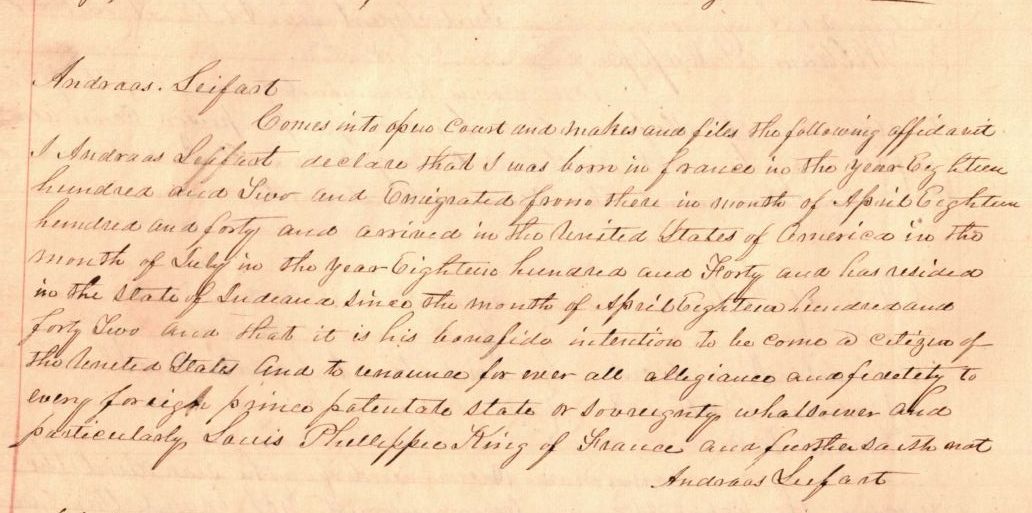 Andraas. Seifart
Comes into open Court and makes and files the following affidavit
I Andraas Seifart declare that I was born in france in the year Eighteen
hundred and Two and Emigrated from there in month of April Eighteen
hundred and forty and arrived in the United States of America in the
month of July in the year Eighteen hundred and Forty and has resided
in the State of Indeana Since the month of April Eighteen hundred and
forty Two and that it is his bonafido intention to be come a citizen of
the United States and to renounce for ever all allegiance and fedelity to
every foreign prince potentate state or sovereignty whatsoever and
particularly Louis Phillippee King of France and further saith not
Andraas Seifart